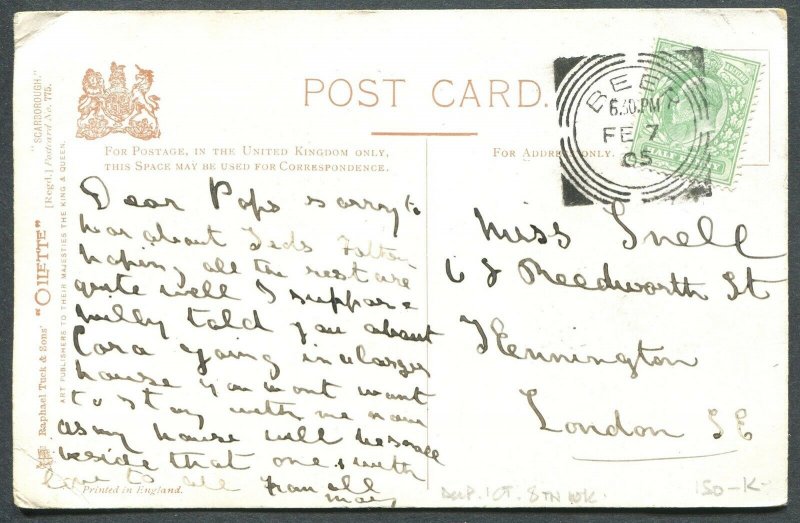 POST CARD.
FOR POSTAGE, IN THE UNITED KINGDOM ONLY,
THIS SPACE MAY BE USED FOR CORRESPONDENCE.
FOR ADDRESS ONLY.
BEER
6.30.PM
FE 7
05
"SCARBOROUGH."
[Regd.] Postcard No. 775.
Raphael Tuck & Sons' "OILETTE"
ART PUBLISHERS TO THEIR MAJESTIES THE KING & QUEEN.
Dear Pops sorry to
hear about Teds
hoping all the rest are
quite well I suppose
willy told you about
Cora going in a larger
house you wont want
to stay with me now
as my house will be small
beside that one, with
love to all from all
may
Miss Snell
68 Reedworth St
Kennington
London SE
Printed in England.